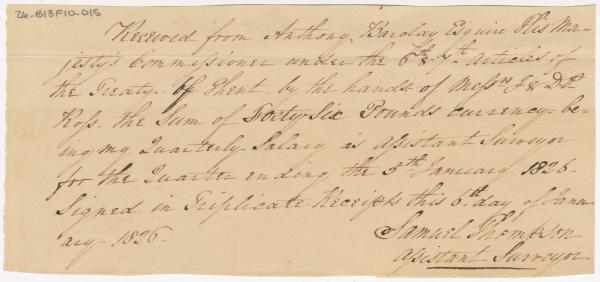 26-B13F10-015
Received from Anthony Barclay Esquire His Ma-
jesty's Commissioner under the 6th & 7th Articles of
the Treaty of Ghent by the hands of Messrs J & D
Ross the Sum of Forty Six Pounds currency be-
ing my Quarterly Salary as Assistant Surveyor
for the Quarter ending the 5th January 1826
Signed in Triplicate Receipts this 6th day of Janu-
ary 1826
Samuel Thompson
Assistant Surveyor